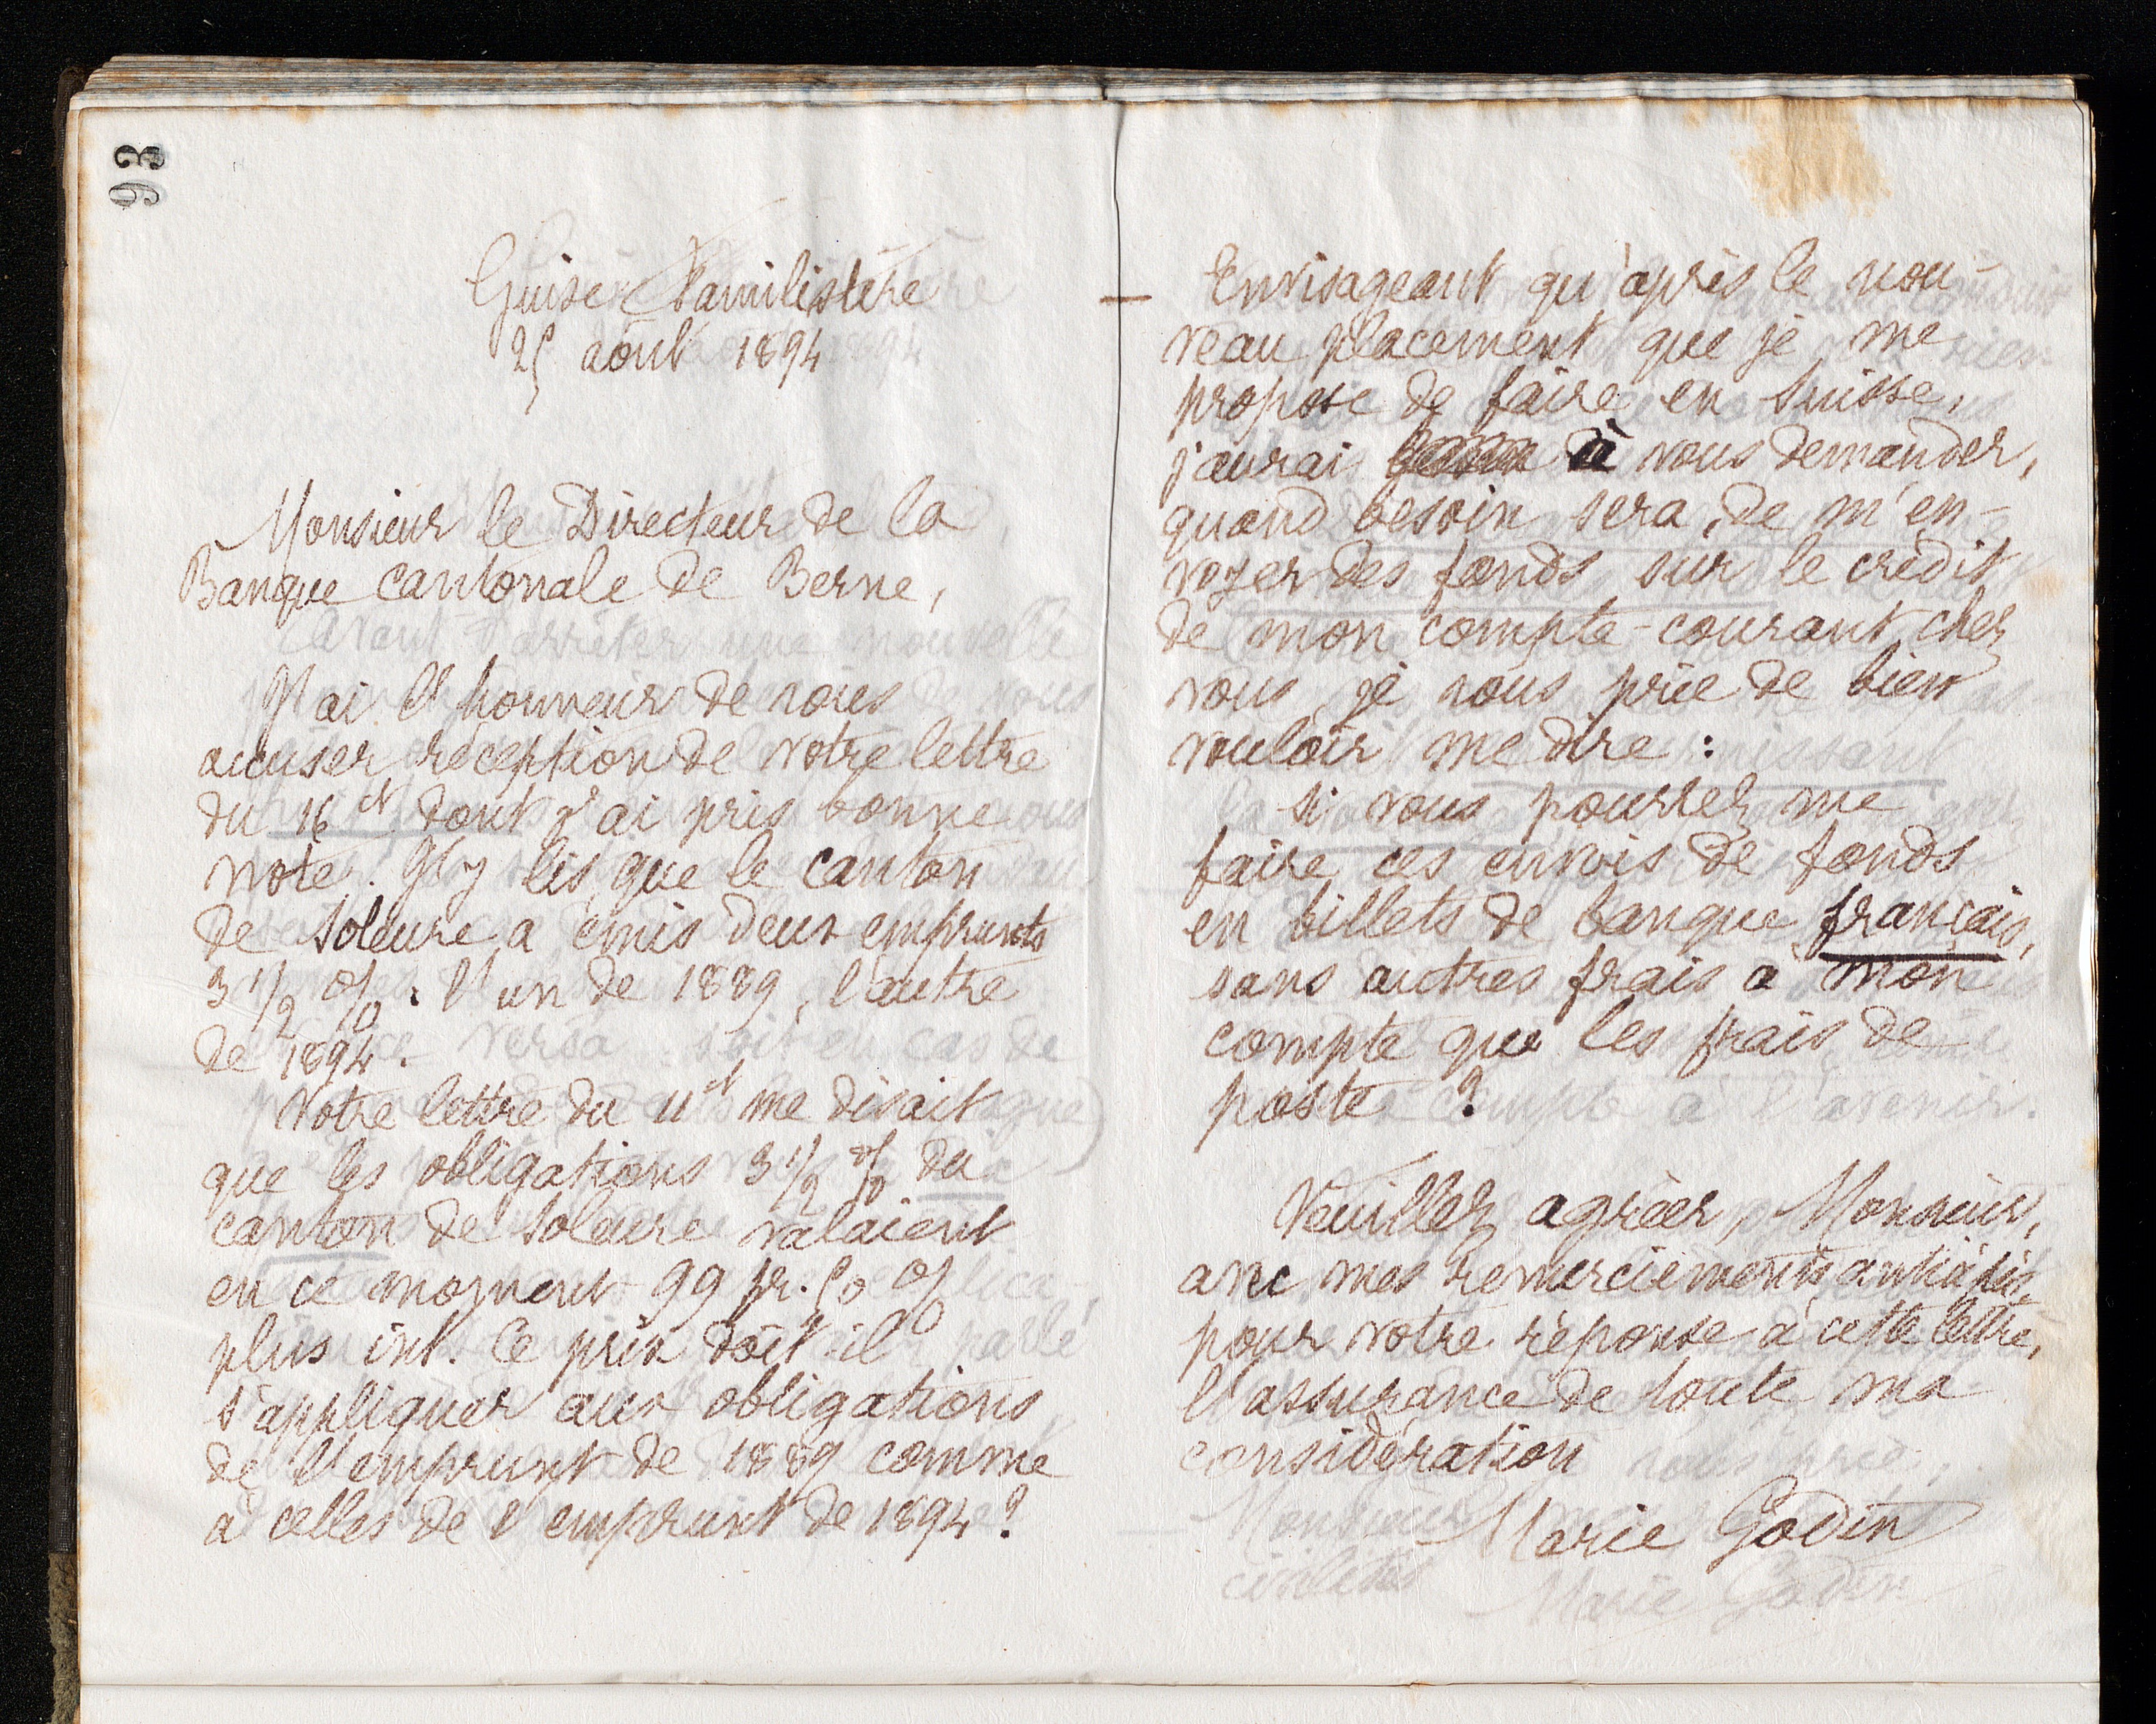 93
Guise Familistère
25 août 1894
Monsieur le Directeur de la
Banque cantonale de Berne,
J'ai l'honneur de vous
accuser réception de votre lettre
du 16 ct dont j'ai pris bonne
note. J'y lis que le canton
de Soleure a émis deux emprunts
3 1/2 % : l'un de 1889, l'autre
de 1894.
Votre lettre du 11 ct me disait
que les obligations 3 1/2 % du
canton de Soleure valaient
en ce moment 99 fr. 50 %
plus int. Ce prix doit-il
s'appliquer aux obligations
de l'emprunt de 1889 comme
à celles de l'emprunt de 1894 ?
Envisageant qu'après le nou-
veau placement que je me
propose de faire en Suisse,
j'aurai à vous demander,
quand besoin sera, de m'en-
voyer des fonds sur le crédit
de mon compte-courant chez
vous je vous prie de bien
vouloir me dire :
si vous pourrez me
faire ces envois de fonds
en billets de banque français,
sans autres frais à mon
compte que les frais de
poste ?
Veuillez agréer, Monsieur,
avec mes remerciements anticipés,
pour votre réponse à cette lettre,
l'assurance de toute ma
considération
Marie Godin